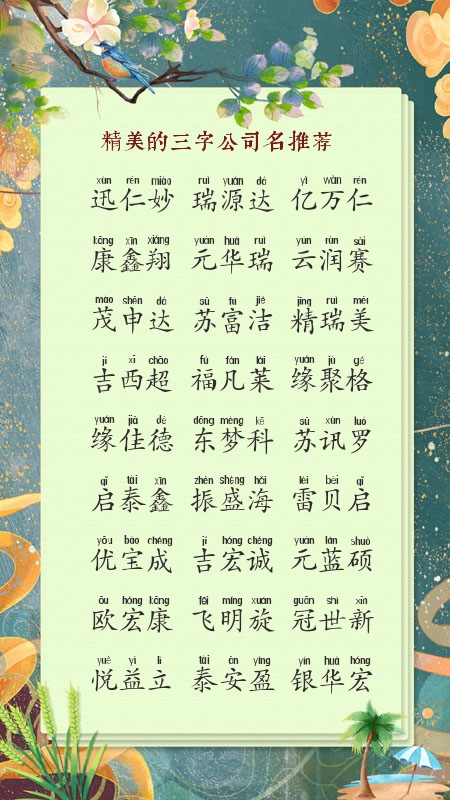 精美的三字公司名推荐
xùn rén miào ruì yuán dá yì wàn rén
迅仁妙 瑞源达 亿万仁
kāng xīn xiáng yuán huá ruì yún rùn sài
康鑫翔 元华瑞 云润赛
mào shēn dá sū fù jié jīng ruì měi
茂申达 苏富洁 精瑞美
jí xī chāo fú fán lái yuán jù gé
吉西超 福凡莱 缘聚格
yuán jiā dé dōng mèng kē sū xùn luó
缘佳德 东梦科 苏讯罗
qǐ tài xīn zhèn shèng hǎi léi bèi qǐ
启泰鑫 振盛海 雷贝启
yōu bǎo chéng jí hóng chéng yuán lán shuò
优宝成 吉宏诚 元蓝硕
ōu hóng kāng fēi míng xuán guān shì xīn
欧宏康 飞明旋 冠世新
yuè yì lì tài ān yíng yín huá hóng
悦益立 泰安盈 银华宏